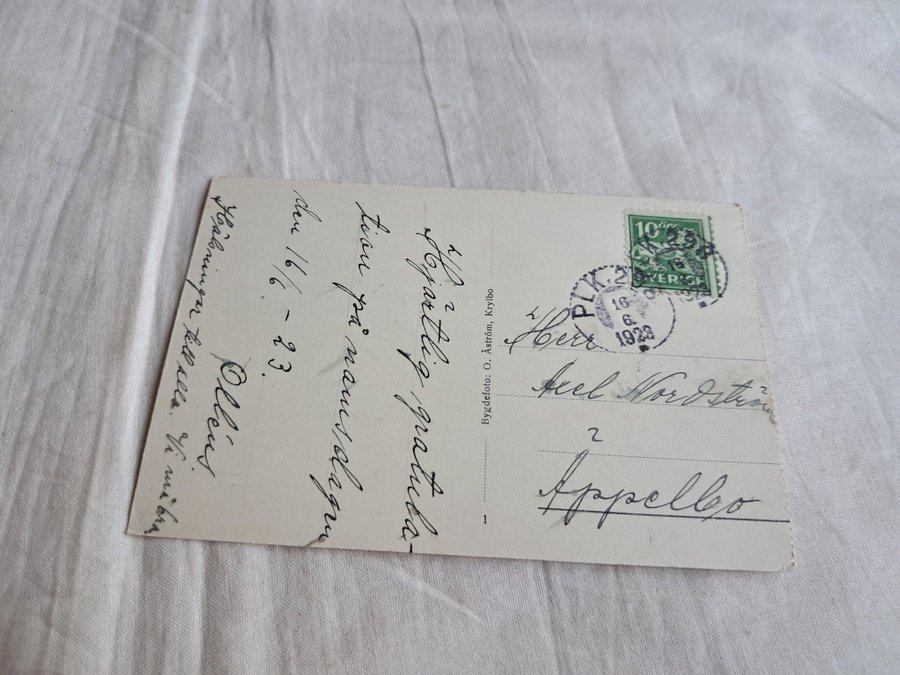 Hjärtlig gratula-
tion på namsdagen
den 16/6 - 23.
Olléns
Hälsningar Vi må bra
Bygdefoto: O. Åström, Krylbo
10
SVERIGE
PLK. 2
16
6
1923
Herr
Axel Nordström
Äppelbo